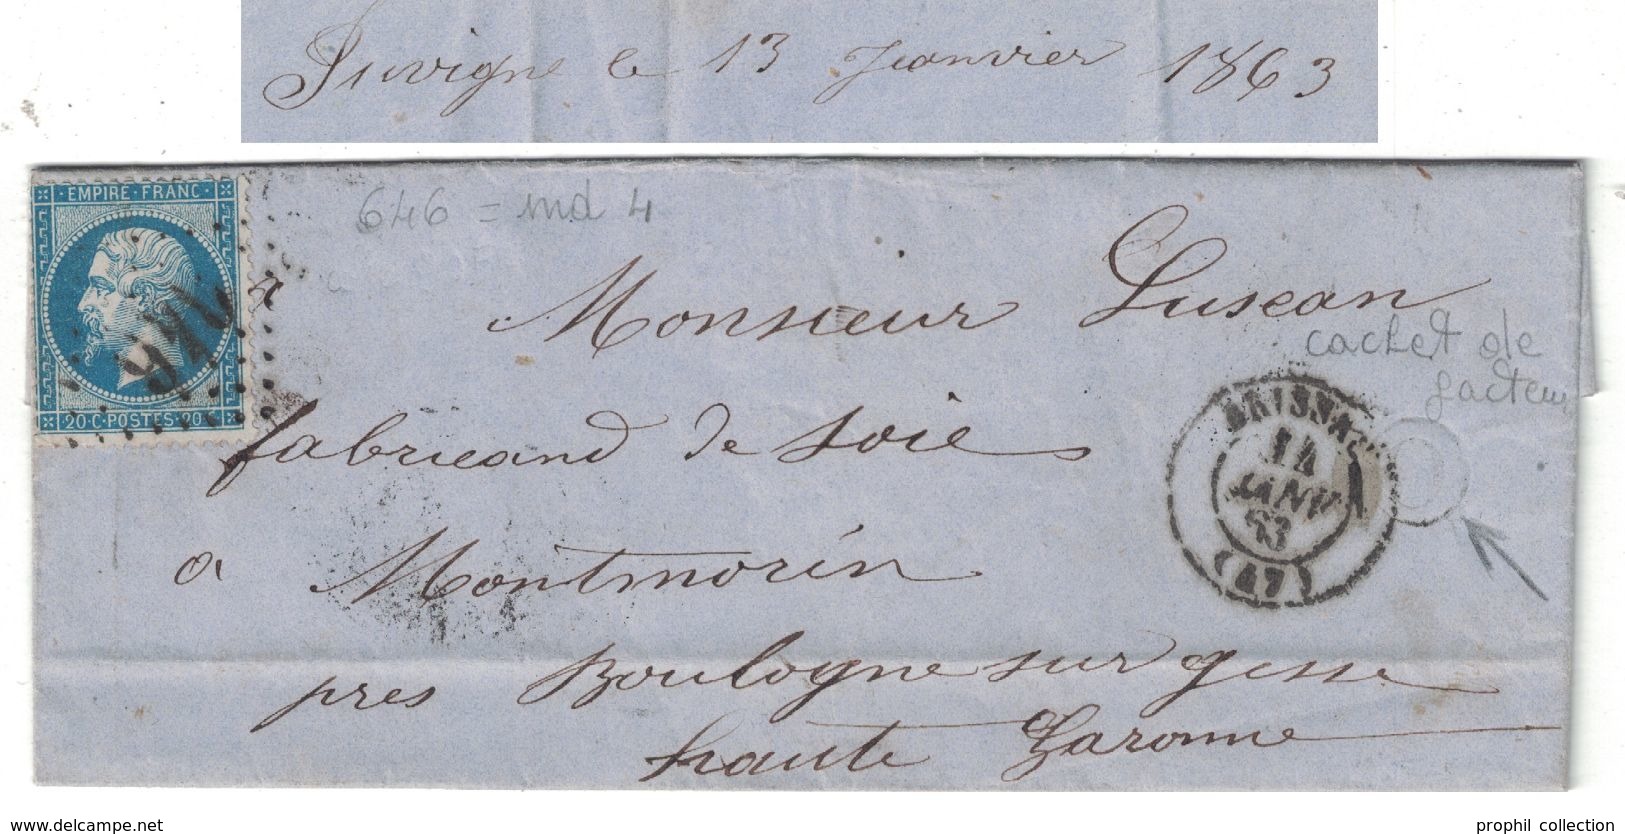 Juvigne le 13 Janvier 1863
EMPIRE · FRANC ·
646 = ind 4
Monsieur Lusean
cachet de
facteur
fabricand de soie
20 · C · POSTES · 20 · C
14
JANV
63
(47)
a Montmorin
près Boulogne sur gesse
haute Garonne
www.delcampe.net
prophil collection